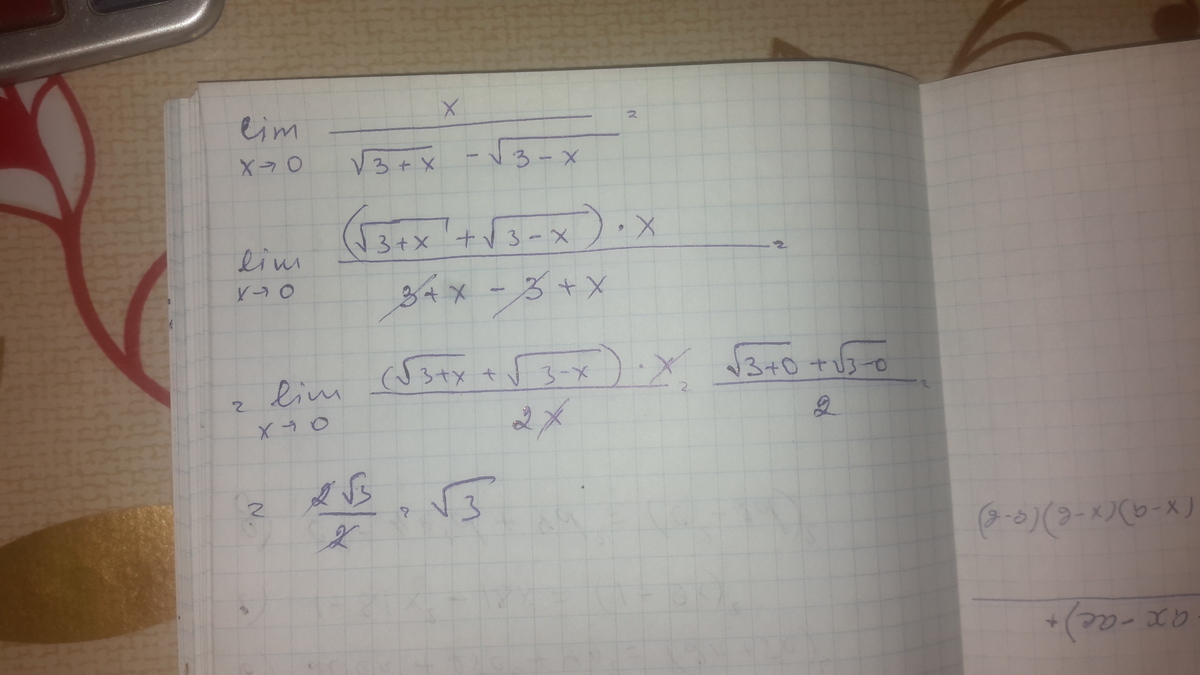 lim x→0 x / (√(3+x) - √(3-x)) =
lim x→0 (√(3+x) + √(3-x)) · x / (3+x-3+x) =
= lim x→0 (√(3+x) + √(3-x)) · x / 2x = (√(3+0) + √(3-0)) / 2 =
= 2√3 / 2 = √3
(x-a)(x-b)(a-b)
ax-ac)+